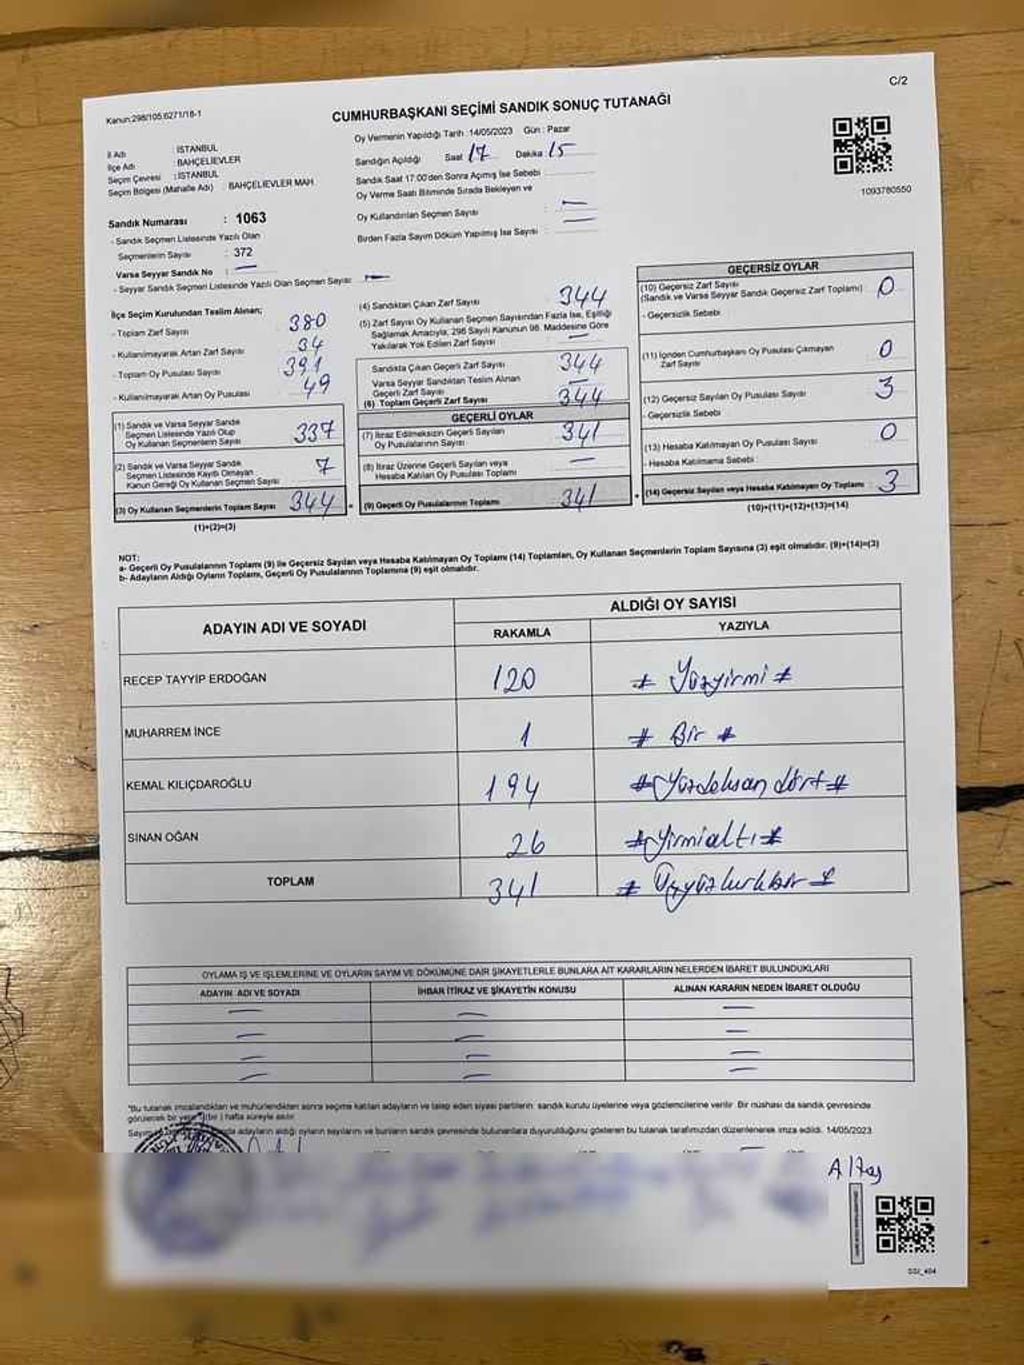 C/2
Kanun:298/105.6271/18-1
CUMHURBAŞKANI SEÇİMİ SANDIK SONUÇ TUTANAĞI
İl Adı : İSTANBUL
İlçe Adı : BAHÇELİEVLER
Seçim Çevresi : İSTANBUL
Seçim Bölgesi (Mahalle Adı) : BAHÇELİEVLER MAH
Oy Vermenin Yapıldığı Tarih : 14/05/2023 Gün : Pazar
Sandığın Açıldığı Saat 17 Dakika 15
Sandık Saat 17:00'den Sonra Açılmış İse Sebebi
Oy Verme Saati Bitiminde Sırada Bekleyen ve
Oy Kullandırılan Seçmen Sayısı : —
Birden Fazla Sayım Döküm Yapılmış İse Sayısı : —
1093780550
Sandık Numarası : 1063
- Sandık Seçmen Listesinde Yazılı Olan
Seçmenlerin Sayısı : 372
Varsa Seyyar Sandık No : —
- Seyyar Sandık Seçmen Listesinde Yazılı Olan Seçmen Sayısı: —
İlçe Seçim Kurulundan Teslim Alınan;
- Toplam Zarf Sayısı 380
- Kullanılmayarak Artan Zarf Sayısı 34
- Toplam Oy Pusulası Sayısı 391
- Kullanılmayarak Artan Oy Pusulası 49
(1) Sandık ve Varsa Seyyar Sandık
Seçmen Listesinde Yazılı Olup
Oy Kullanan Seçmenlerin Sayısı 337
(2) Sandık ve Varsa Seyyar Sandık
Seçmen Listesinde Kayıtlı Olmayan
Kanun Gereği Oy Kullanan Seçmen Sayısı 7
(3) Oy Kullanan Seçmenlerin Toplam Sayısı 344
(1)+(2)=(3)
(4) Sandıktan Çıkan Zarf Sayısı 344
(5) Zarf Sayısı Oy Kullanan Seçmen Sayısından Fazla İse, Eşitliği
Sağlamak Amacıyla; 298 Sayılı Kanunun 98. Maddesine Göre
Yakılarak Yok Edilen Zarf Sayısı —
Sandıkta Çıkan Geçerli Zarf Sayısı 344
Varsa Seyyar Sandıktan Teslim Alınan
Geçerli Zarf Sayısı —
(6) Toplam Geçerli Zarf Sayısı 344
GEÇERLİ OYLAR
(7) İtiraz Edilmeksizin Geçerli Sayılan
Oy Pusulalarının Sayısı 341
(8) İtiraz Üzerine Geçerli Sayılan veya
Hesaba Katılan Oy Pusulası Toplamı —
(9) Geçerli Oy Pusulalarının Toplamı 341
GEÇERSİZ OYLAR
(10) Geçersiz Zarf Sayısı
(Sandık ve Varsa Seyyar Sandık Geçersiz Zarf Toplamı) 0
- Geçersizlik Sebebi
(11) İçinden Cumhurbaşkanı Oy Pusulası Çıkmayan
Zarf Sayısı 0
(12) Geçersiz Sayılan Oy Pusulası Sayısı 3
- Geçersizlik Sebebi
(13) Hesaba Katılmayan Oy Pusulası Sayısı 0
- Hesaba Katılmama Sebebi :
(14) Geçersiz Sayılan veya Hesaba Katılmayan Oy Toplamı 3
(10)+(11)+(12)+(13)=(14)
NOT:
a- Geçerli Oy Pusulalarının Toplamı (9) ile Geçersiz Sayılan veya Hesaba Katılmayan Oy Toplamı (14) Toplamları, Oy Kullanan Seçmenlerin Toplam Sayısına (3) eşit olmalıdır. (9)+(14)=(3)
b- Adayların Aldığı Oyların Toplamı, Geçerli Oy Pusulalarının Toplamına (9) eşit olmalıdır.
ADAYIN ADI VE SOYADI ALDIĞI OY SAYISI
RAKAMLA YAZIYLA
RECEP TAYYİP ERDOĞAN 120 # Yüzyirmi #
MUHARREM İNCE 1 # Bir #
KEMAL KILIÇDAROĞLU 194 # Yüzdoksan dört #
SİNAN OĞAN 26 # Yirmialtı #
TOPLAM 341 # Üçyüzkırkbir #
OYLAMA İŞ VE İŞLEMLERİNE VE OYLARIN SAYIM VE DÖKÜMÜNE DAİR ŞİKAYETLERLE BUNLARA AİT KARARLARIN NELERDEN İBARET BULUNDUKLARI
ADAYIN ADI VE SOYADI İHBAR İTİRAZ VE ŞİKAYETİN KONUSU ALINAN KARARIN NEDEN İBARET OLDUĞU
— — —
— — —
— — —
— — —
*Bu tutanak imzalandıktan ve mühürlendikten sonra seçime katılan adayların ve talep eden siyasi partilerin sandık kurulu üyelerine veya gözlemcilerine verilir. Bir nüshası da sandık çevresinde
görülecek bir yere 1(bir) hafta süreyle asılır.
adayların aldığı oyların sayılarını ve bunların sandık çevresinde bulunanlara duyurulduğunu gösteren bu tutanak tarafımızdan düzenlenerek imza edildi. 14/05/2023